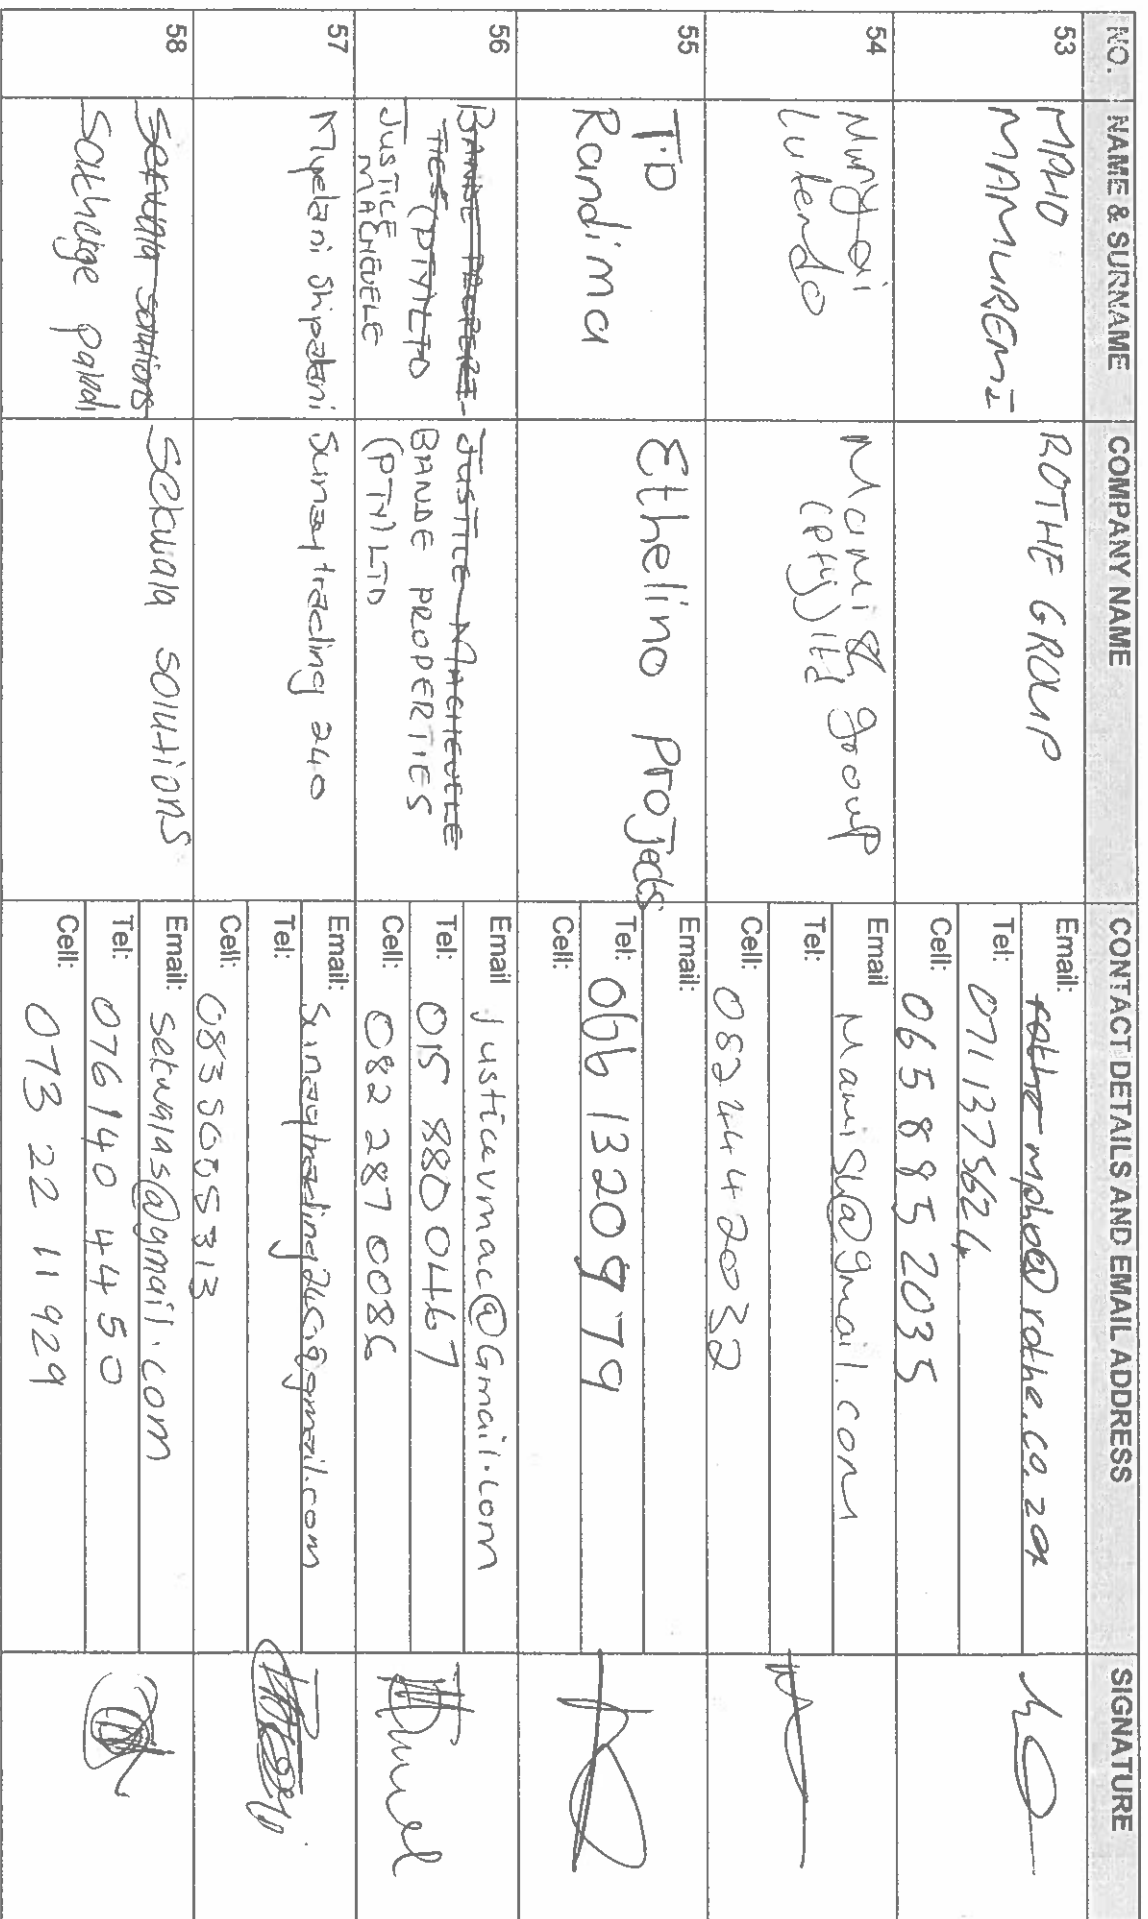 NO. NAME & SURNAME COMPANY NAME CONTACT DETAILS AND EMAIL ADDRESS SIGNATURE
53
MAMUREMI
ROTHE GROUP
Email: mpho@rothe.co.za
Tel: 071 1375624
Cell: 065 885 2035
54
Lutendo
Mamish group
(Pty) ltd
Email Mamish@gmail.com
Tel:
Cell: 082 444 2032
55
T.D
Randima
Ethelino Projects
Email:
Tel: 066 1320979
Cell:
56
BANDE PROPERT-
TIES (PTY) LTD
JUSTICE
MACHEVELE
JUSTICE MACHEVELE
BANDE PROPERTIES
(PTY) LTD
Email justicevmac@Gmail.com
Tel: 015 880 0467
Cell: 082 287 0086
57
Myelani Shipalani
Sunay trading 240
Email: Sunaytrading240@gmail.com
Tel:
Cell: 083 5055313
58
Sekwala Solutions
Sathige
Sekwala Solutions
Email: Sekwalas@gmail.com
Tel: 076 140 4450
Cell: 073 22 11 929